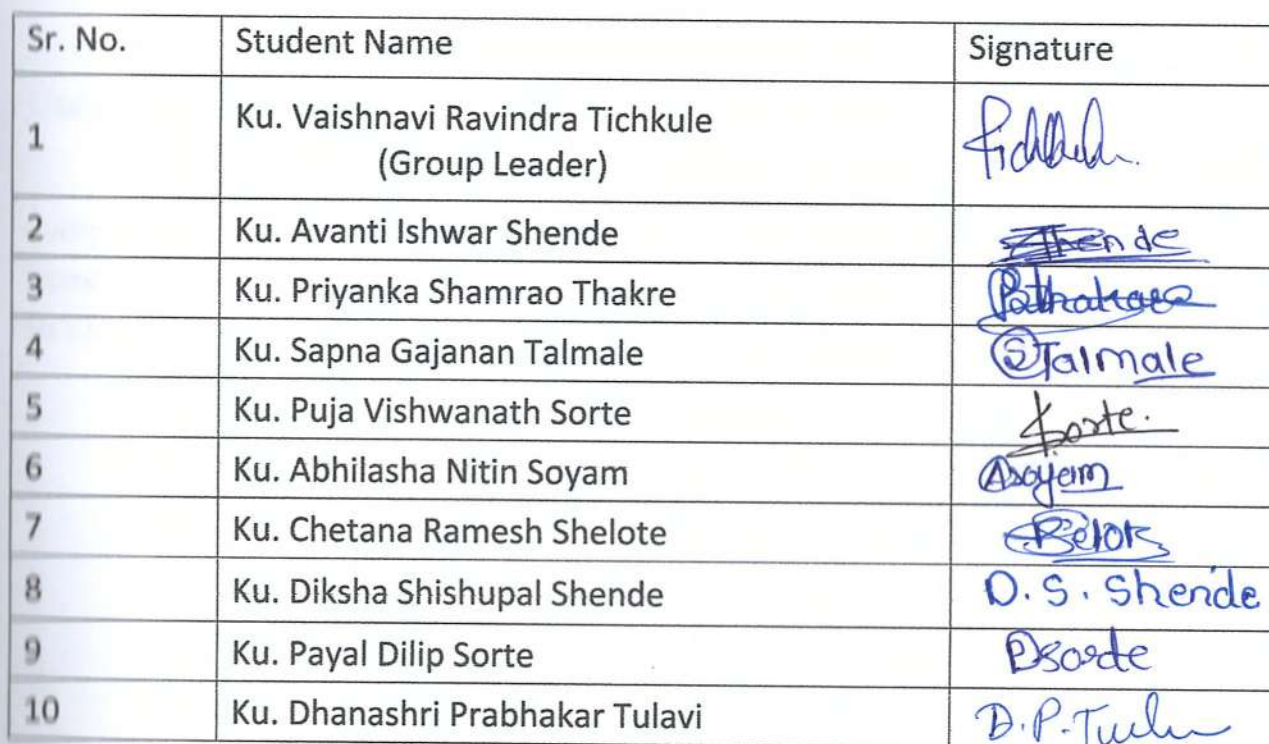 Sr. No. Student Name Signature
1 Ku. Vaishnavi Ravindra Tichkule
(Group Leader)
2 Ku. Avanti Ishwar Shende Shende
3 Ku. Priyanka Shamrao Thakre
4 Ku. Sapna Gajanan Talmale S Talmale
5 Ku. Puja Vishwanath Sorte Sorte.
6 Ku. Abhilasha Nitin Soyam Asoyam
7 Ku. Chetana Ramesh Shelote
8 Ku. Diksha Shishupal Shende D. S. Shende
9 Ku. Payal Dilip Sorte PSorte
10 Ku. Dhanashri Prabhakar Tulavi D. P.